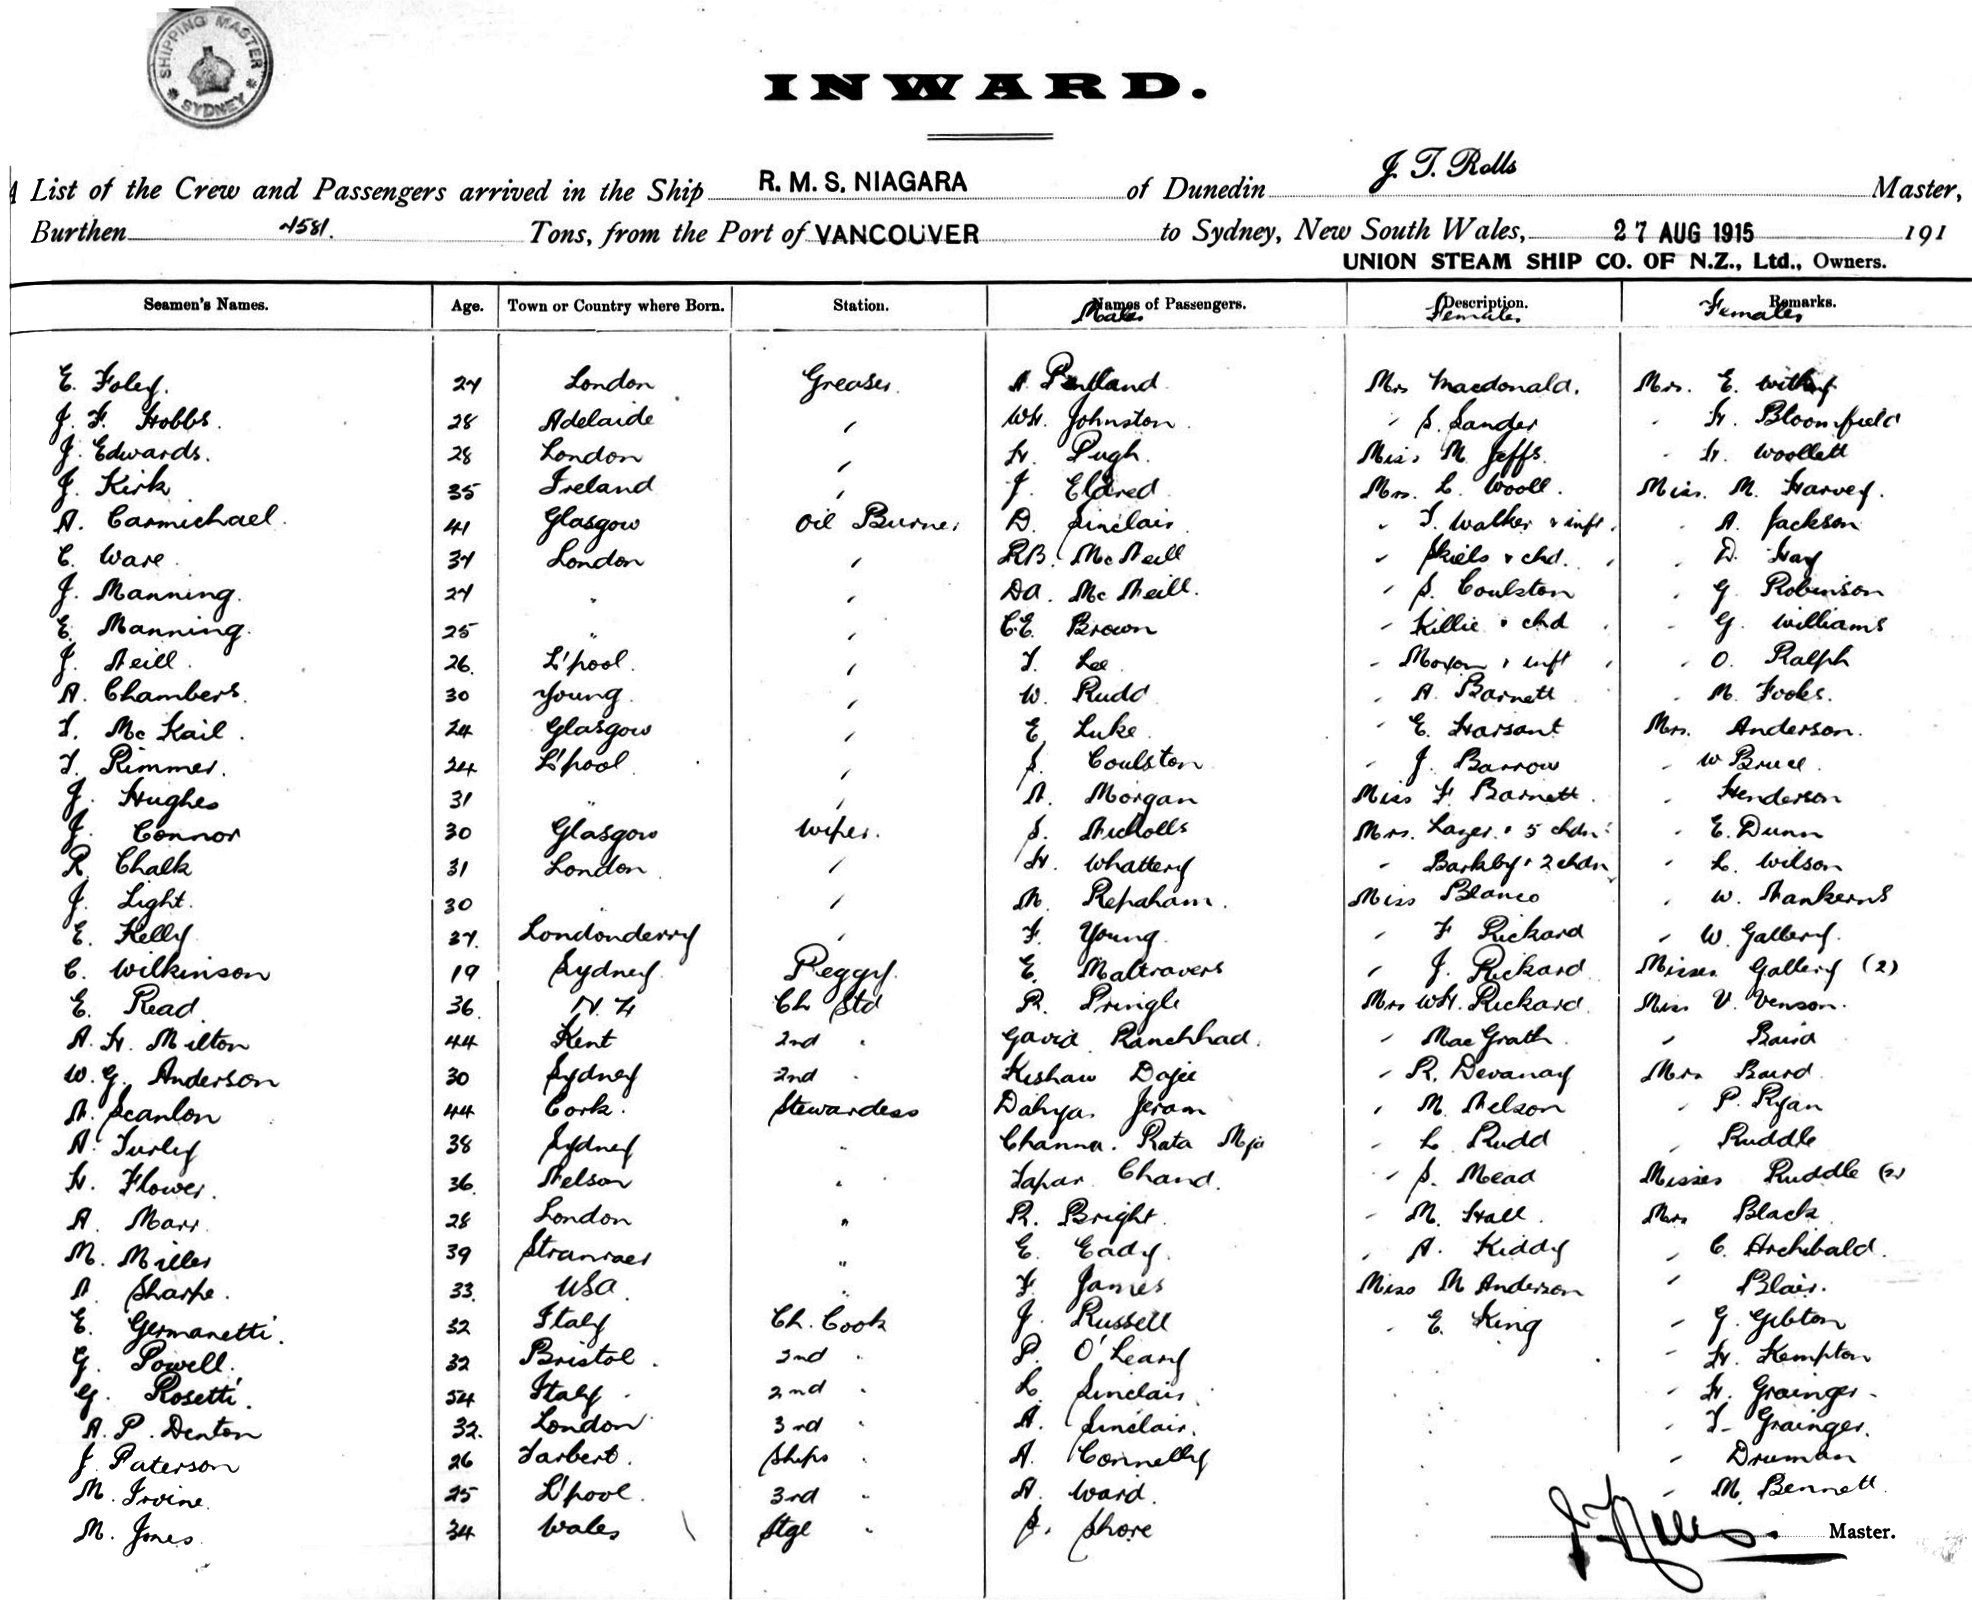 SHIPPING MASTER
SYDNEY
INWARD.
A List of the Crew and Passengers arrived in the Ship R. M. S. NIAGARA of Dunedin J. T. Rolls Master,
Burthen 7581. Tons, from the Port of VANCOUVER to Sydney, New South Wales, 27 AUG 1915 191
UNION STEAM SHIP CO. OF N.Z., Ltd., Owners.
Seamen's Names. Age. Town or Country where Born. Station. Names of Passengers. Description. Remarks.
Males Females Females
E. Foley. 27 London Greaser. A Pentland Mrs Macdonald. Mrs. E.
J. F. Hobbs. 28 Adelaide " WH. Johnston " S. Sander " H. Bloomfield
J. Edwards. 28 London " H. Pugh. Miss M. Jeffs. " H. Woollett
J. Kirk 35 Ireland " J. Eldred Mrs. L. Wooll. Miss. M. Harvey.
A. Carmichael 41 Glasgow Oil Burner D. Sinclair " T. Walker & inft. " A. Jackson
C. Ware 37 London " RB. McNeill " Skiels & chd. " D. Hay
J. Manning. 27 " " DA. McNeill. " S. Coulston " G. Robinson
E. Manning 25 " " C.E. Brown " Killie & chd " G. Williams
J. Neill. 26. L'pool. " T. Lee " Moxon & inft " O. Ralph
A. Chambers. 30 Young. " W. Rudd " A. Barnett " M. Fooks.
T. McKail. 24 Glasgow " E. Luke " E. Harsant Mrs. Anderson.
T. Rimmer. 24 L'pool " S. Coulston " J. Barrow " W Bruce.
J. Hughes 31 " " A. Morgan Miss F. Barnett. " Henderson
J. Connor 30 Glasgow Wiper. S. Nicholls Mrs. Lazer. & 5 chdn. " E. Dunn
R. Chalk 31 London " H. Whattery " Barkby & 2 chdn " L. Wilson
J. Light. 30 " " M. Repaham. Miss Blanco " W. Mankerns
E. Kelly 37. Londonderry " F. Young " F Rickard " W. Gallery.
C. Wilkinson 19 Sydney Peggy. E. Maltravers " J. Rickard Misses Gallery (2)
E. Read 36. N. Z Ch Std R. Pringle Mrs WH. Rickard Miss V. Venson.
A. H. Milton 44 Kent 2nd " Govid Ranchhad. " MacGrath " Baird
W. G. Anderson 30 Sydney 2nd " Kishaw Dajee " R. Devanay Mrs Baird
A. Scanlon 44 Cork. Stewardess Dahya Jeram " M. Nelson " P. Ryan
A. Turley 38 Sydney " Channa. Rata " L Rudd " Ruddle
H. Flower. 36. Nelson " Tapar Chand. " S. Mead Misses Ruddle (2)
A. Marr. 28 London " R. Bright. " M. Hall. Mrs Black
M. Miller 39 Stranraer " E. Eady. " A. Kiddy " C. Archibald.
A. Sharpe. 33. USA " F James Miss M Anderson " Blair.
E. Germanetti. 32 Italy Ch. Cook J. Russell " E. King " G. Gibton
G. Powell. 32 Bristol. 2nd " P. O'Leary " H. Kempton
G. Rosetti. 54 Italy. 2nd " L. Sinclair. " H. Grainger.
A. P. Denton 32. London 3rd " A. Sinclair. " T. Grainger.
J. Paterson 26 Tarbert. Ships " A. Connelly " Druman
M. Irvine. 25 L'pool. 3rd " A. Ward. " M. Bennett.
M. Jones 34 Wales Stge " S. Shore J T Rolls. Master.